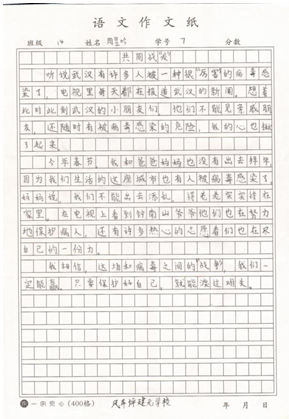 语文作文纸
班级 姓名 学号 7 分数
共同战"疫"
听说武汉有许多人被一种很"厉害"的病毒感
染了。电视里每天都在报道武汉的新闻,想着
此时此刻武汉的小朋友们,他们不能见亲戚朋
友,还随时有被病毒感染的危险,我的心也揪
了起来。
今年春节,我和爸爸妈妈也没有出去拜年
因为我们生活的这座城市也有人被病毒感染了。
妈妈说,我们不能出去添乱,得老老实实待在
家里。在电视上看到钟南山爷爷他们也在努力
地保护病人,还有许多热心的志愿者们也在尽
自己的一份力。
我相信,这场和病毒之间的"战争",我们一
定能赢。只要保护好自己,就能渡过难关。
一张爱心(400格) 凤年 建元学校 年 月 日